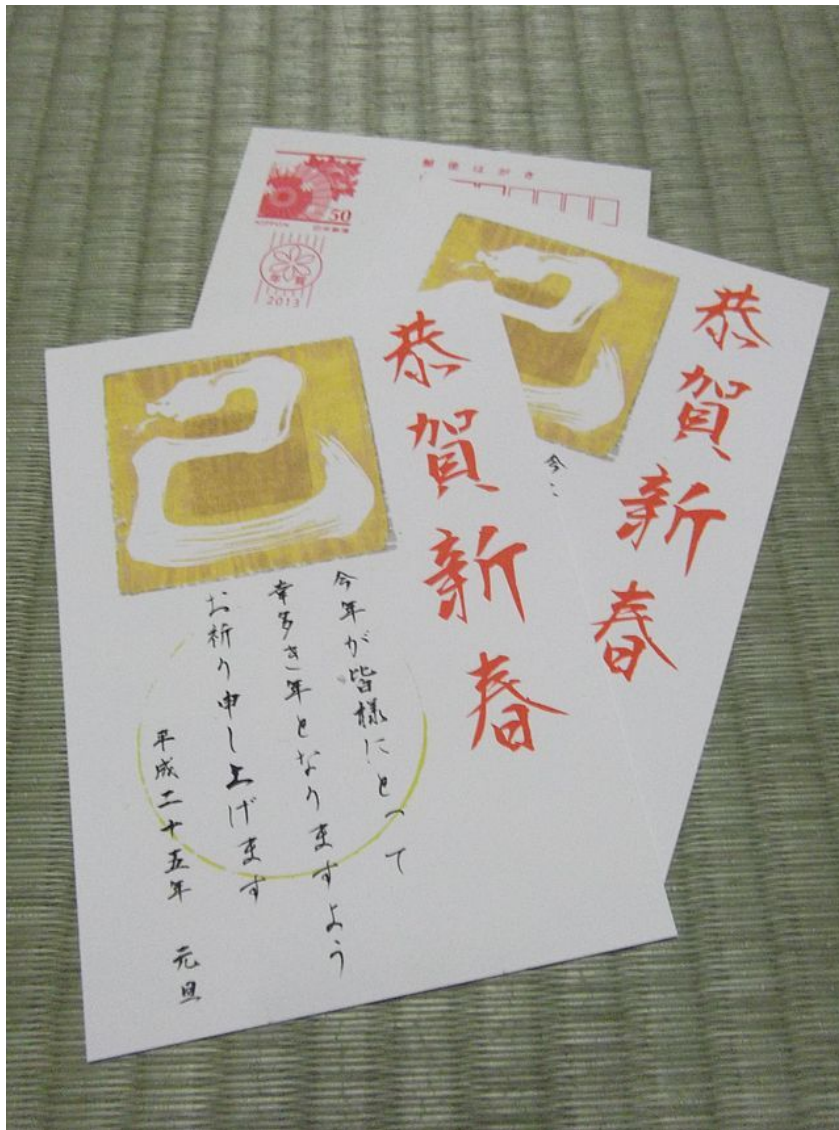 郵便はがき
50
NIPPON 日本郵便
年賀
2013
恭賀新春
巳
今
恭賀新春
巳
今年が皆様にとって
幸多き年となりますよう
お祈り申し上げます
平成二十五年 元旦